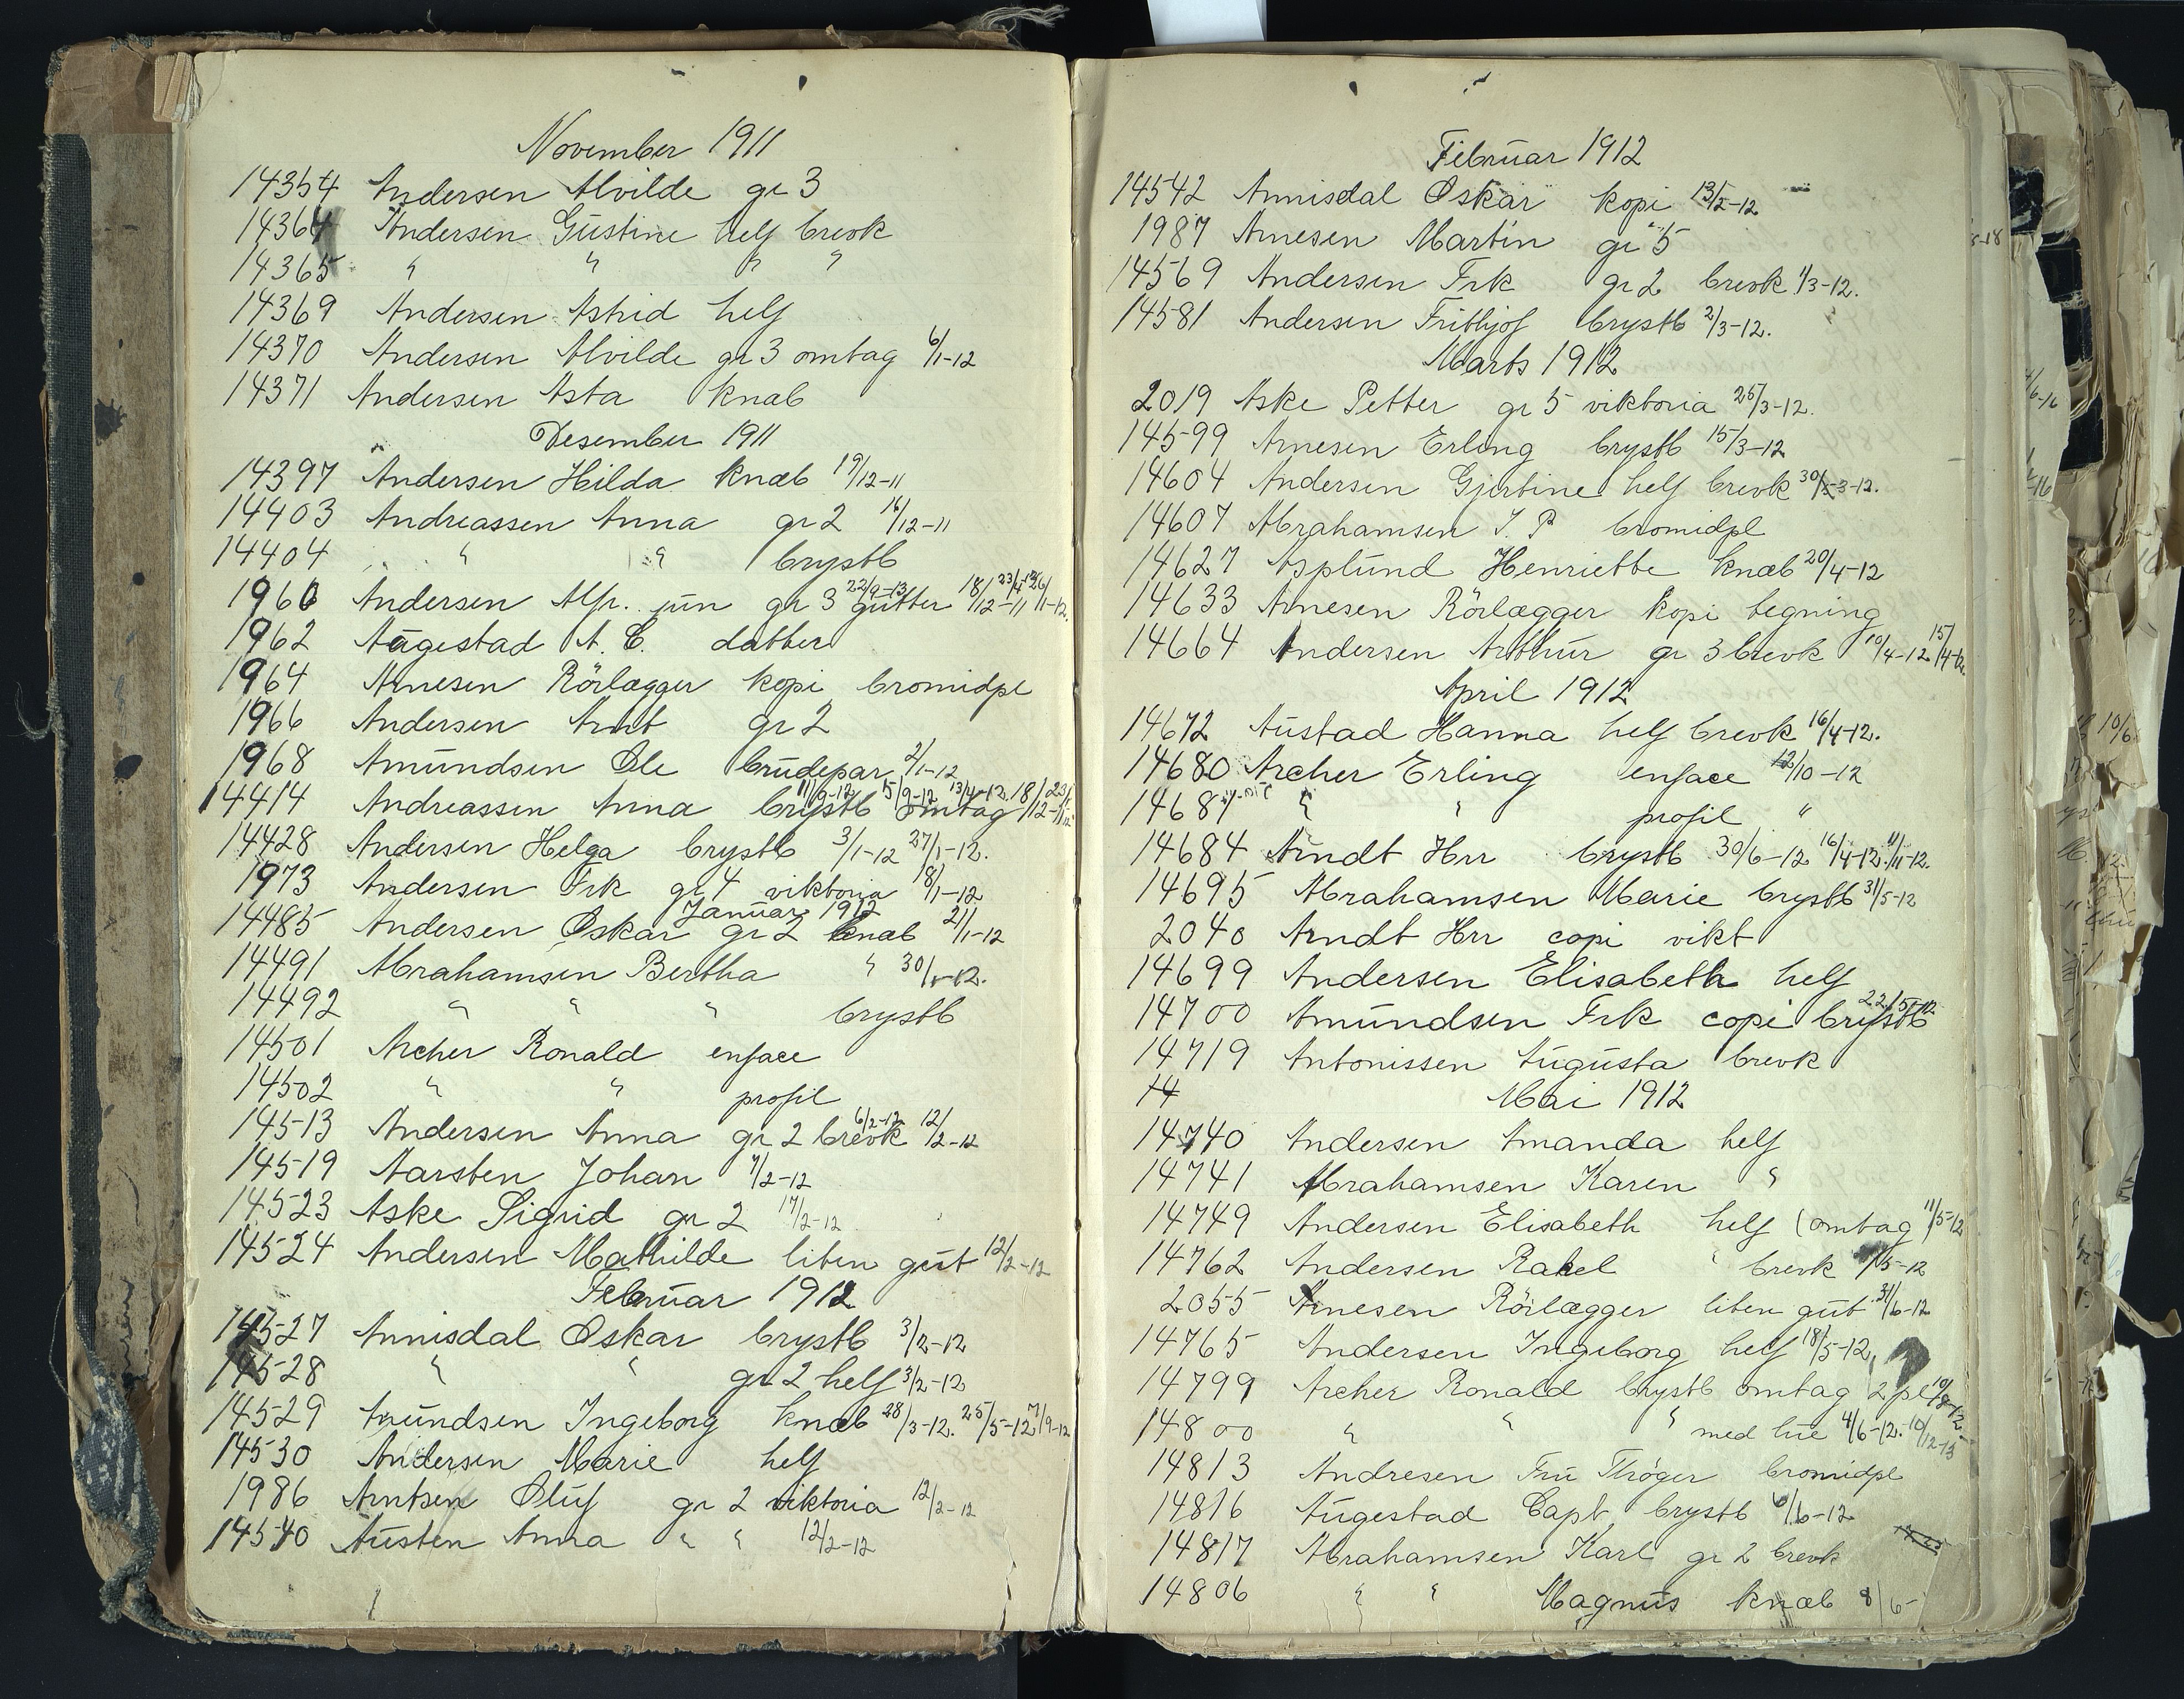 November 1911
14354 Andersen Alvilde gr 3
14364 Andersen Gustine helf brevk
14365 " " " "
14369 Andersen Astrid helf
14370 Andersen Alvilde gr 3 omtag 6/1-12
14371 Andersen Asta knæb
Desember 1911
14397 Andersen Hilda knæb 19/12-11
14403 Andreassen Anna gr 2 16/12-11
14404 " " brystb
1960 Andersen Alfr. jun gr 3 22/9-13 gutter 18/12-11
1962 Aagestad A. C. datter
1964 Arnesen Rörlægger kopi bromidpl
1966 Andersen Arnt gr 2
1968 Amundsen Ole brudepar 2/1-12
14414 Andreassen Anna brystb omtag 11/9-12 5/9-12 13/4-12 18/12-11
14428 Andersen Helga brystb 3/1-12 27/1-12.
1973 Andersen Frk gr 4 viktoria 18/1-12
Januar 1912
14485 Andersen Oskar gr 2 knæb 2/1-12
14491 Abrahamsen Bertha " 30/1-12.
14492 " " " brystb
14501 Archer Ronald enface
14502 " " profil
14513 Andersen Anna gr 2 brevk 6/2-12 12/2-12
14519 Aarsten Johan 7/2-12
14523 Aske Sigrid gr 2 17/2-12
14524 Andersen Mathilde liten gut 12/2-12
Februar 1912
14527 Annisdal Oskar brystb 3/2-12
14528 " " gr 2 helf 3/2-12
14529 Amundsen Ingeborg knæb 28/3-12. 25/5-12 7/9-12
14530 Andersen Marie helf
1986 Arntsen Oluf gr 2 viktoria 12/2-12
14540 Austen Anna " " 12/2-12
Februar 1912
14542 Annisdal Oskar kopi 13/2-12
1987 Arnesen Martin gr 5
14569 Andersen Frk gr 2 brevk 1/3-12.
14581 Andersen Frithjof brystb 2/3-12.
Marts 1912
2019 Aske Petter gr 5 viktoria 25/3-12.
14599 Arnesen Erling brystb 15/3-12
14604 Andersen Gjertine helf brevk 30/3-12.
14607 Abrahamsen I. P bromidpl
14627 Asplund Henriette knæb 20/4-12
14633 Arnesen Rörlægger kopi tegning
14664 Andersen Arthur gr 3 brevk 10/4-12 15/4-12
April 1912
14672 Austad Hanna helf brevk 16/4-12.
14680 Archer Erling enface 12/10-12
14681 " " profil "
14684 Arndt Hrr brystb 30/6-12 16/4-12. 11/11-12.
14695 Abrahamsen Marie brystb 31/5-12
2040 Arndt Hrr copi vikt
14699 Andersen Elisabeth helf
14700 Amundsen Frk copi brystb 22/5-12
14719 Antonissen Augusta brevk
14 Mai 1912
14740 Andersen Amanda helf
14741 Abrahamsen Karen "
14749 Andersen Elisabeth helf (omtag 11/5-12
14762 Andersen Rakel " brevk /5-12
2055 Arnesen Rörlægger liten gut 31/6-12
14765 Andersen Ingeborg helf 18/5-12
14799 Archer Ronald brystb omtag 2 pl 10/8-12
14800 " " " med hue 4/6-12. 10/12-13
14813 Andresen Fru Thröger bromidpl
14816 Augestad Capt brystb 6/6-12
14817 Abrahamsen Karl gr 2 brevk
14806 " " Magnus knæb 8/6-